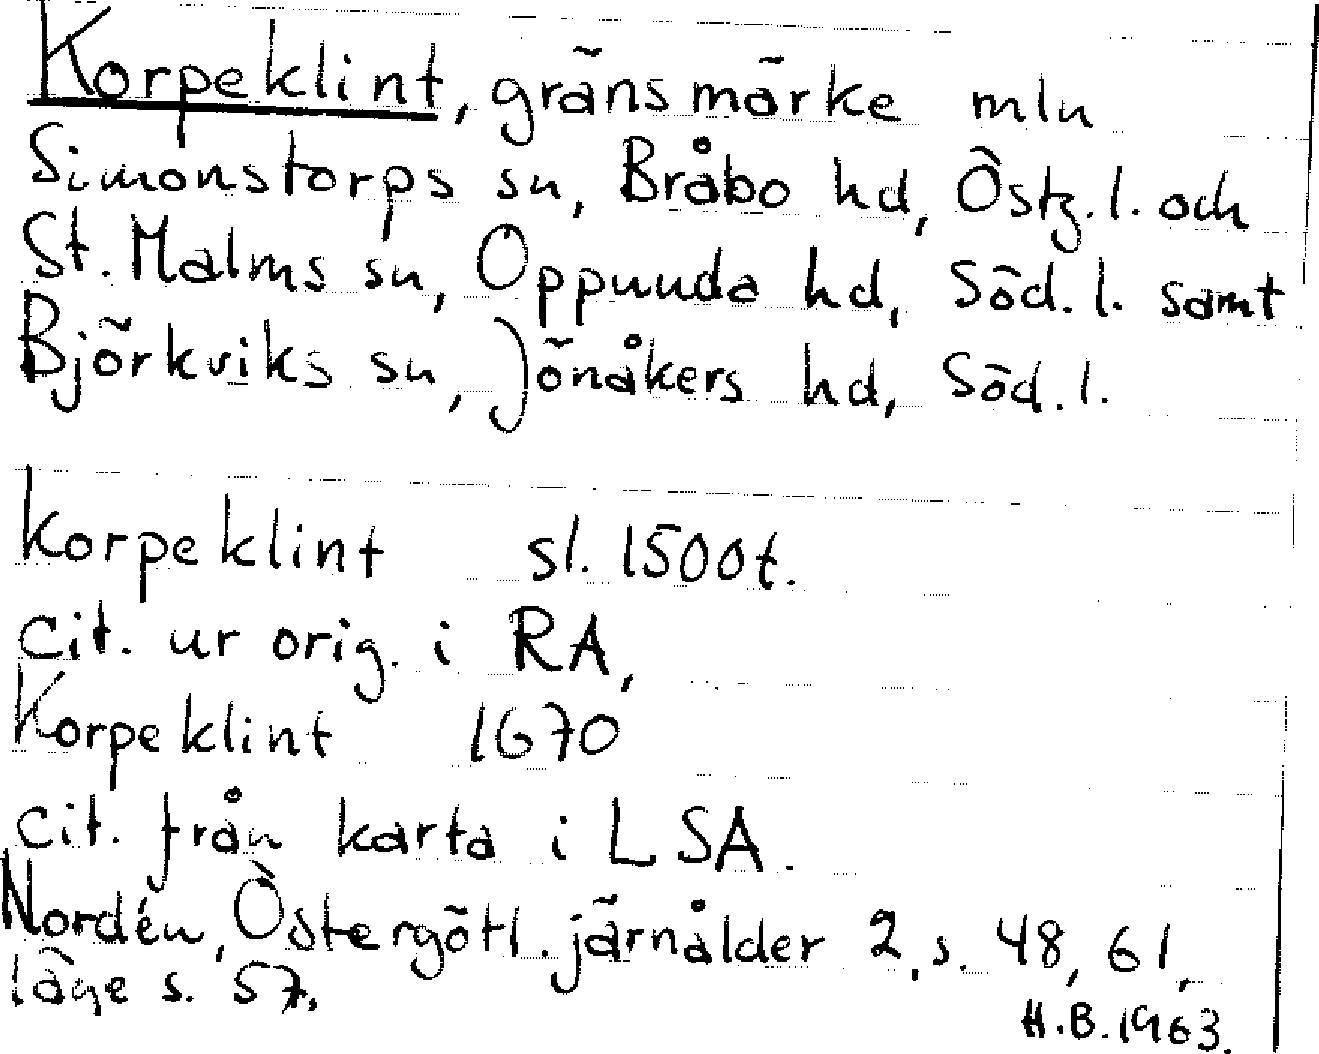 Korpeklint, gränsmärke mln
Simonstorps sn, Bråbo hd, Östg.l. och
St. Malms sn, Oppunda hd, Söd.l. samt
Björkviks sn, Jönåkers hd, Söd.l.
Korpeklint sl. 1500t.
cit. ur orig. i RA,
Korpeklint 1670
cit. från karta i LSA.
Nordén, Östergötl. järnålder 2, s. 48, 61,
läge s. 57.
H.B. 1963.